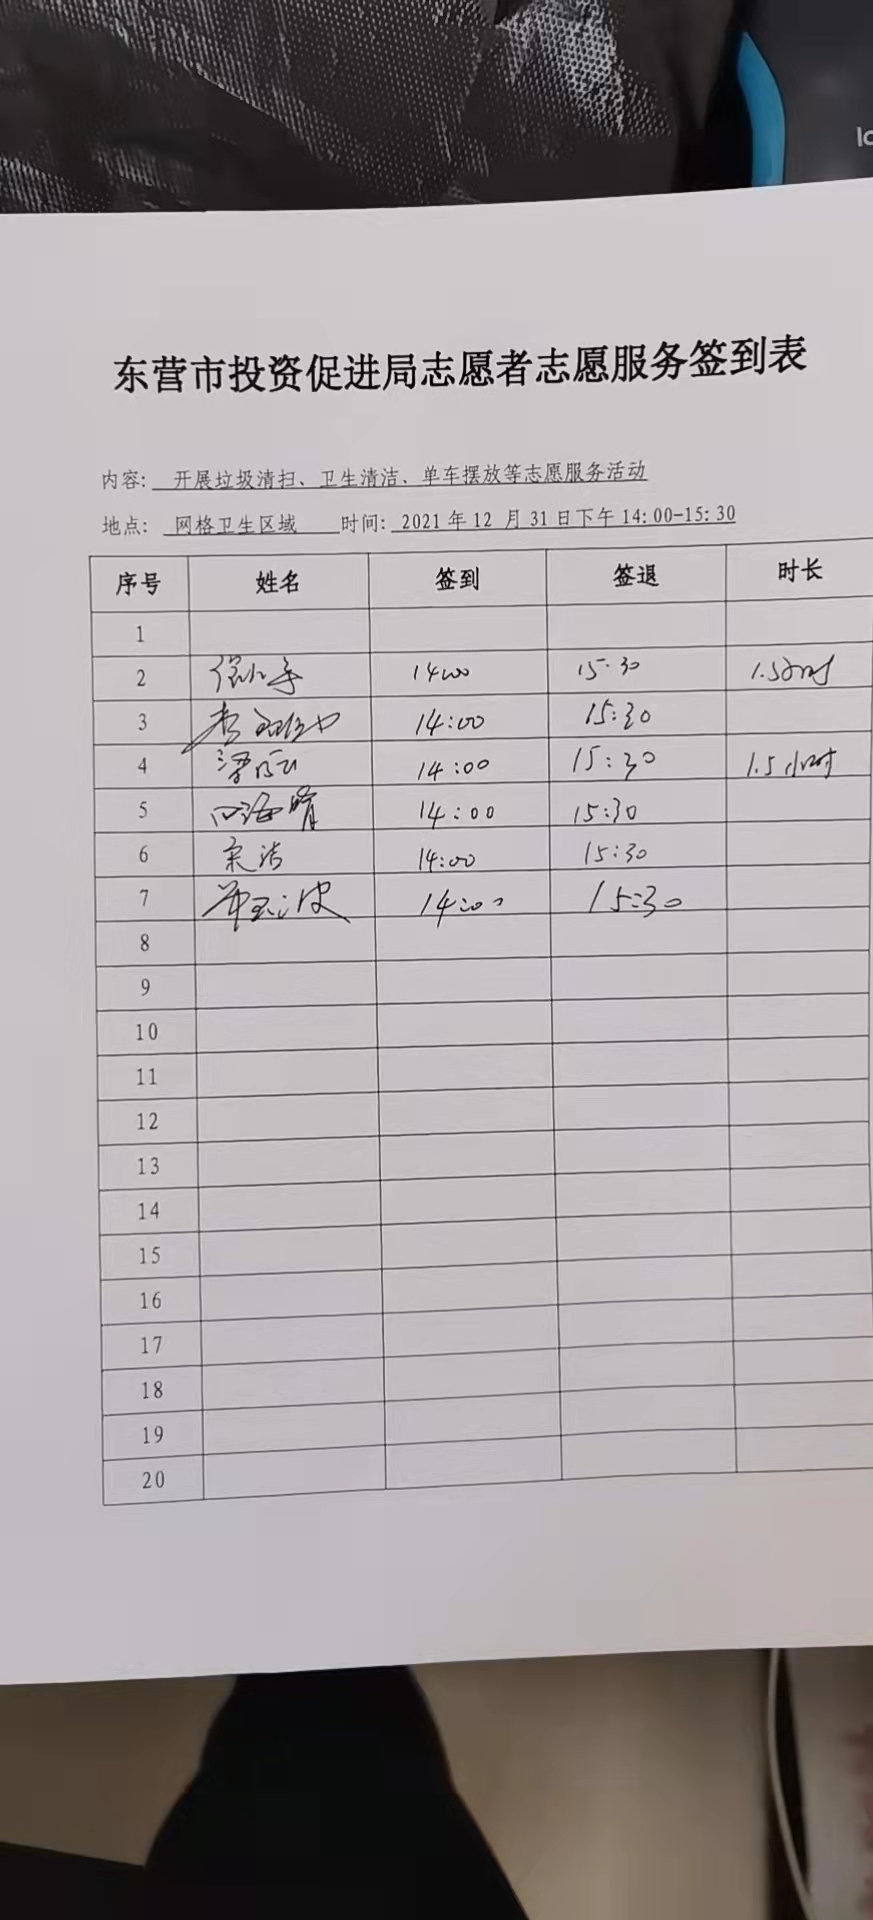 东营市投资促进局志愿者志愿服务签到表
内容: 开展垃圾清扫、卫生清洁、单车摆放等志愿服务活动
地点: 网格卫生区域 时间: 2021年12月31日下午14:00-15:30
序号 姓名 签到 签退 时长
1
2 14:00 15:30 1.5小时
3 14:00 15:30
4 14:00 15:30 1.5小时
5 14:00 15:30
6 宋洁 14:00 15:30
7 14:00 15:30
8
9
10
11
12
13
14
15
16
17
18
19
20